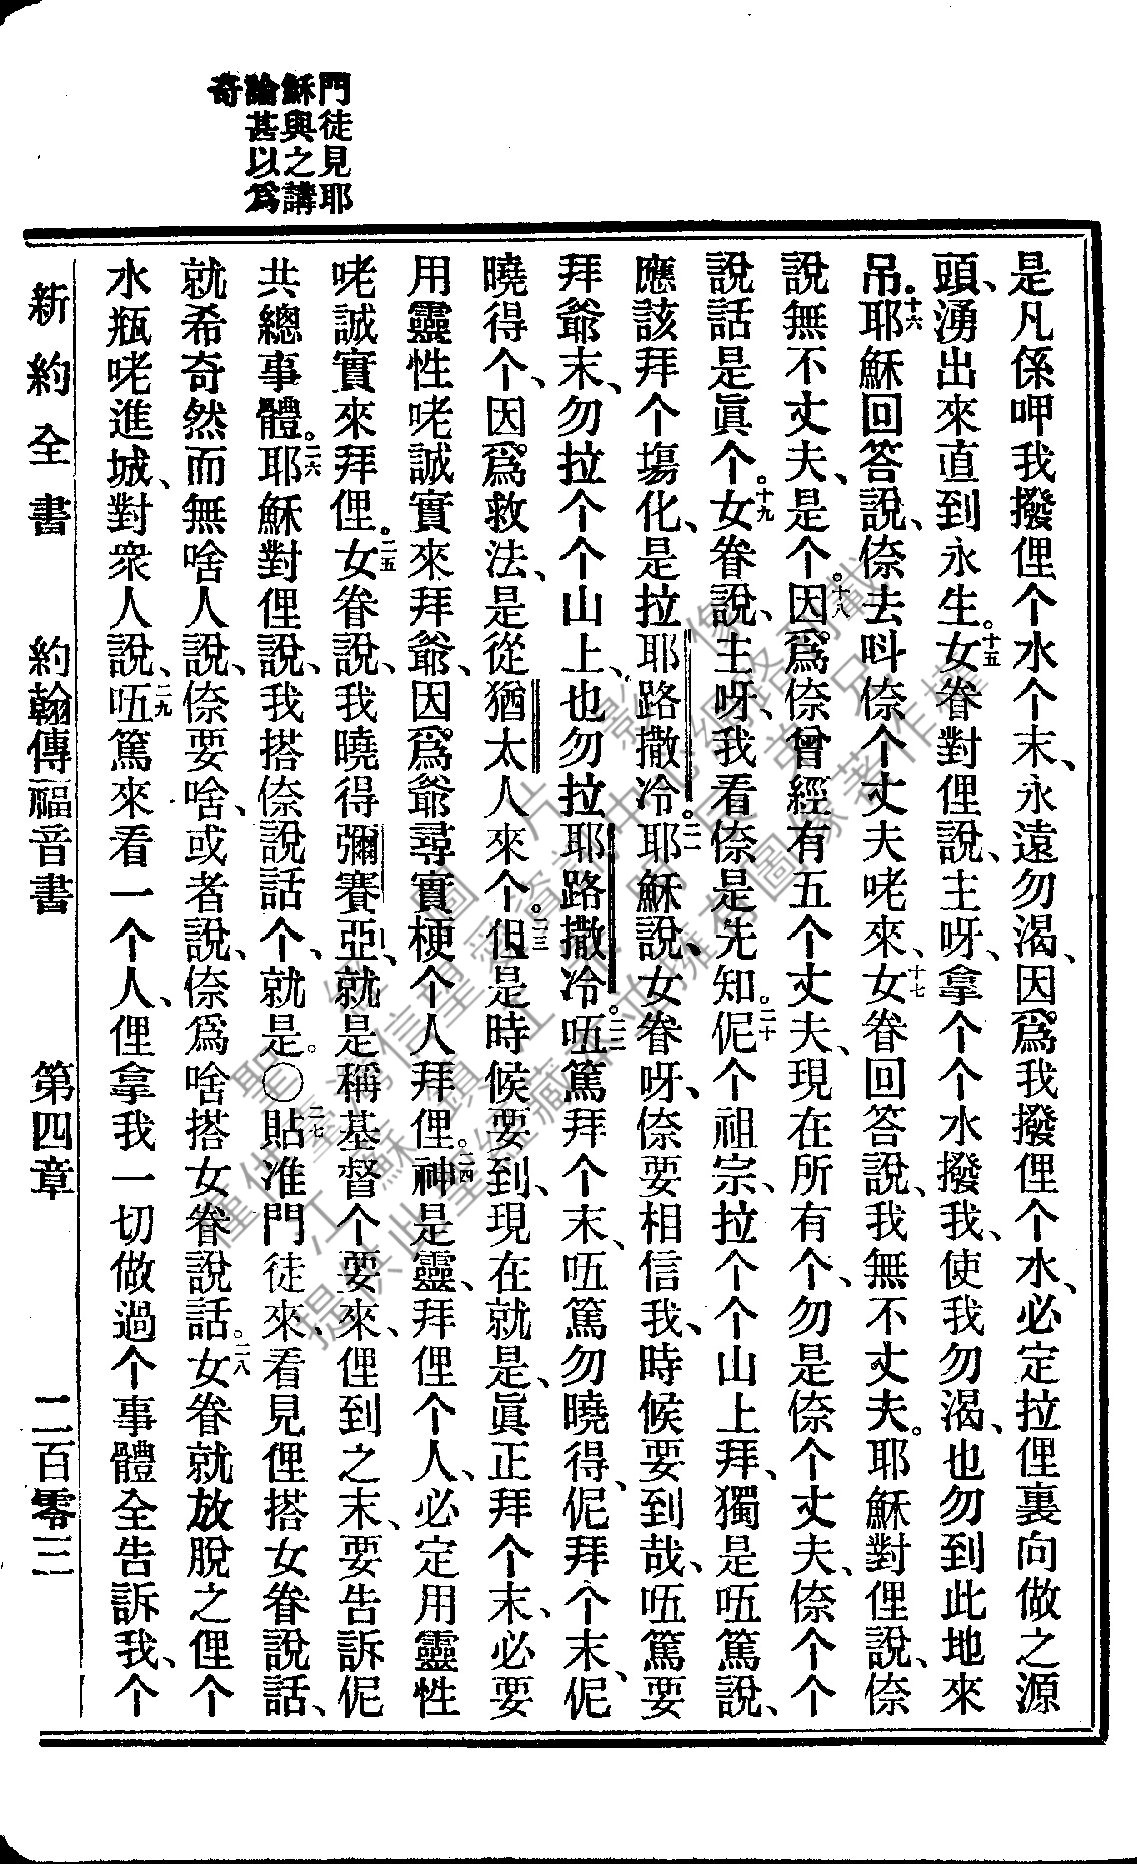 門徒見耶
穌與之講
論甚以爲
奇
是凡係呷我撥俚个水个末、永遠勿渴、因爲我撥俚个水、必定拉俚裏向做之源
頭、湧出來直到永生。十五女眷對俚說、主呀、拿个个水撥我、使我勿渴、也勿到此地來
吊。十六耶穌回答說、倷去呌倷个丈夫咾來、十七女眷回答說、我無不丈夫。耶穌對俚說、倷
說無不丈夫、是个。十八因爲倷曾經有五个丈夫、現在所有个、勿是倷个丈夫、倷个个
說話是眞个。十九女眷說、主呀、我看倷是先知。二十伲个祖宗、拉个个山上拜、獨是㕶篤說、
應該拜个塲化、是拉耶路撒冷。二一耶穌說、女眷呀、倷要相信我、時候要到哉、㕶篤要
拜爺末、勿拉个个山上、也勿拉耶路撒冷。二二㕶篤拜个末、㕶篤勿曉得、伲拜个末、伲
曉得个、因爲救法、是從猶太人來个。二三但是時候要到、現在就是、眞正拜个末、必要
用靈性咾誠實來拜爺、因爲爺尋實梗个人拜俚。二四神是靈、拜俚个人、必定用靈性
咾誠實來拜俚。二五女眷說、我曉得彌賽亞、就是稱基督个要來、俚到之末、要告訴伲
共總事體。二六耶穌對俚說、我搭倷說話个、就是。〇二七貼准門徒來、看見俚搭女眷說話、
就希奇然而無啥人說、倷要啥、或者說、倷爲啥搭女眷說話。二八女眷就放脫之俚个
水瓶咾進城、對衆人說、二九㕶篤來看一个人、俚拿我一切做過个事體全告訴我、个
新約全書 約翰傳福音書 第四章 二百零三